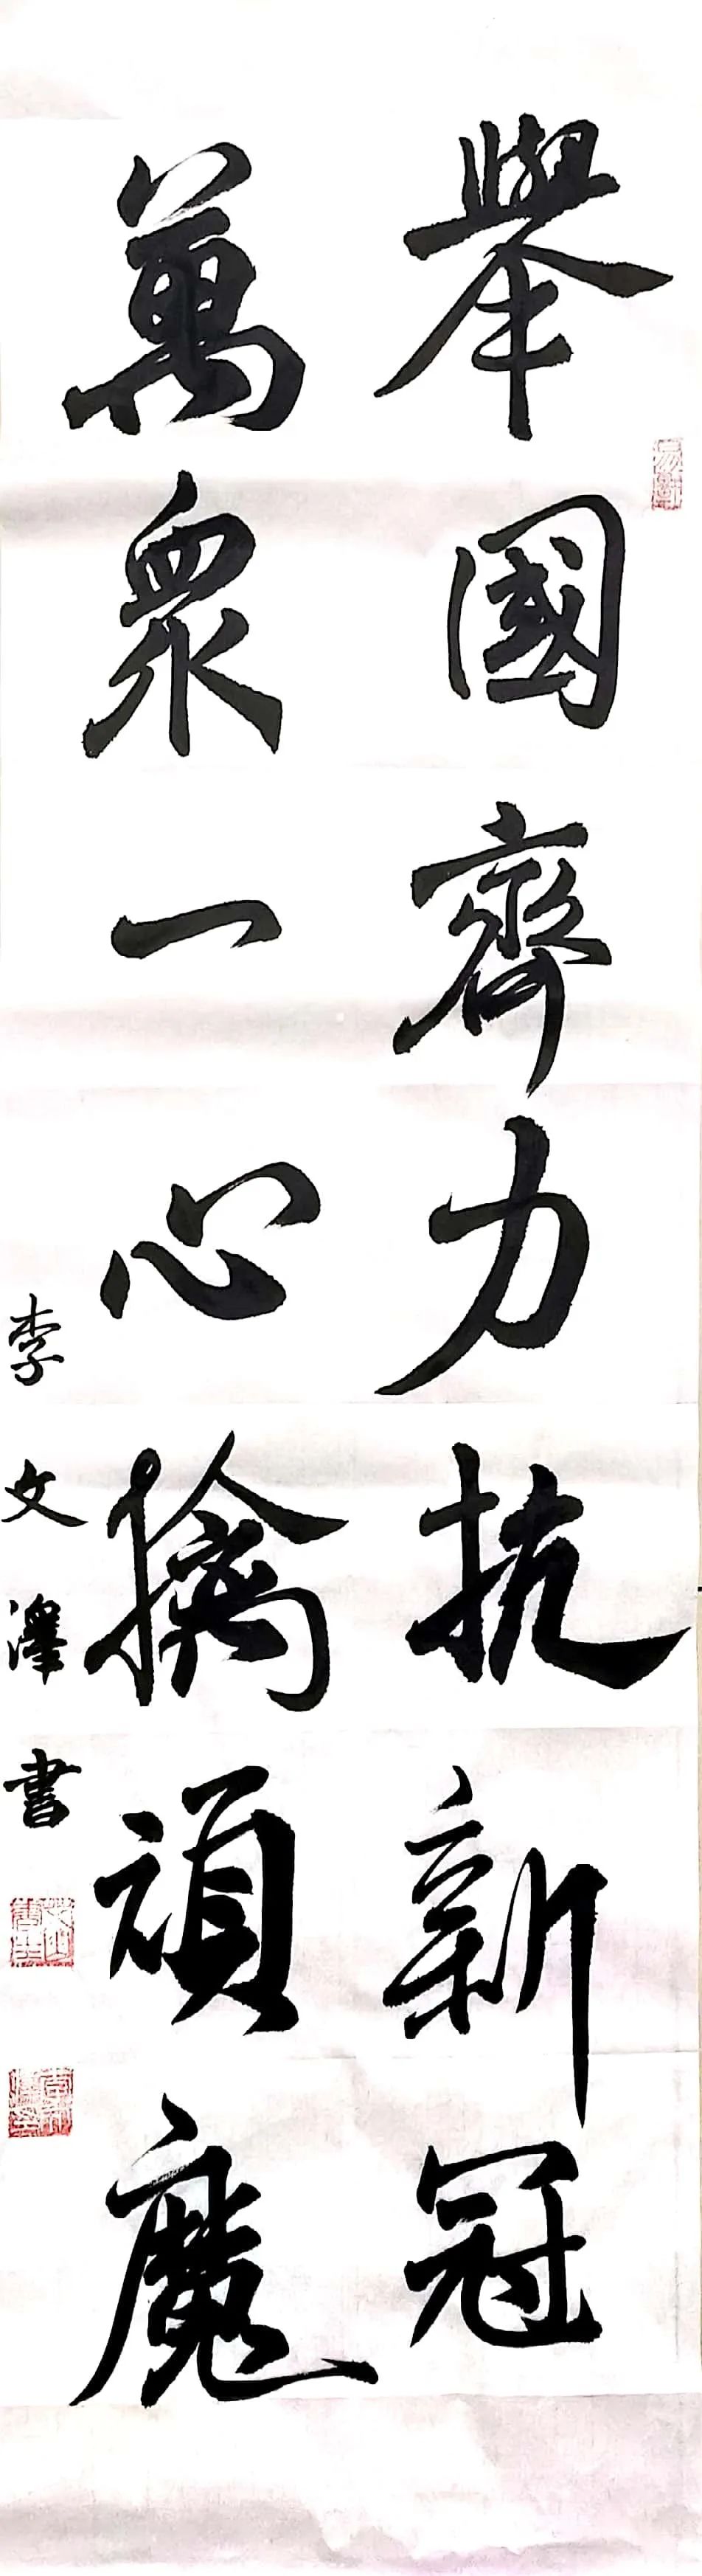 舉國齊力抗新冠
萬衆一心擒頑魔
李文澤書